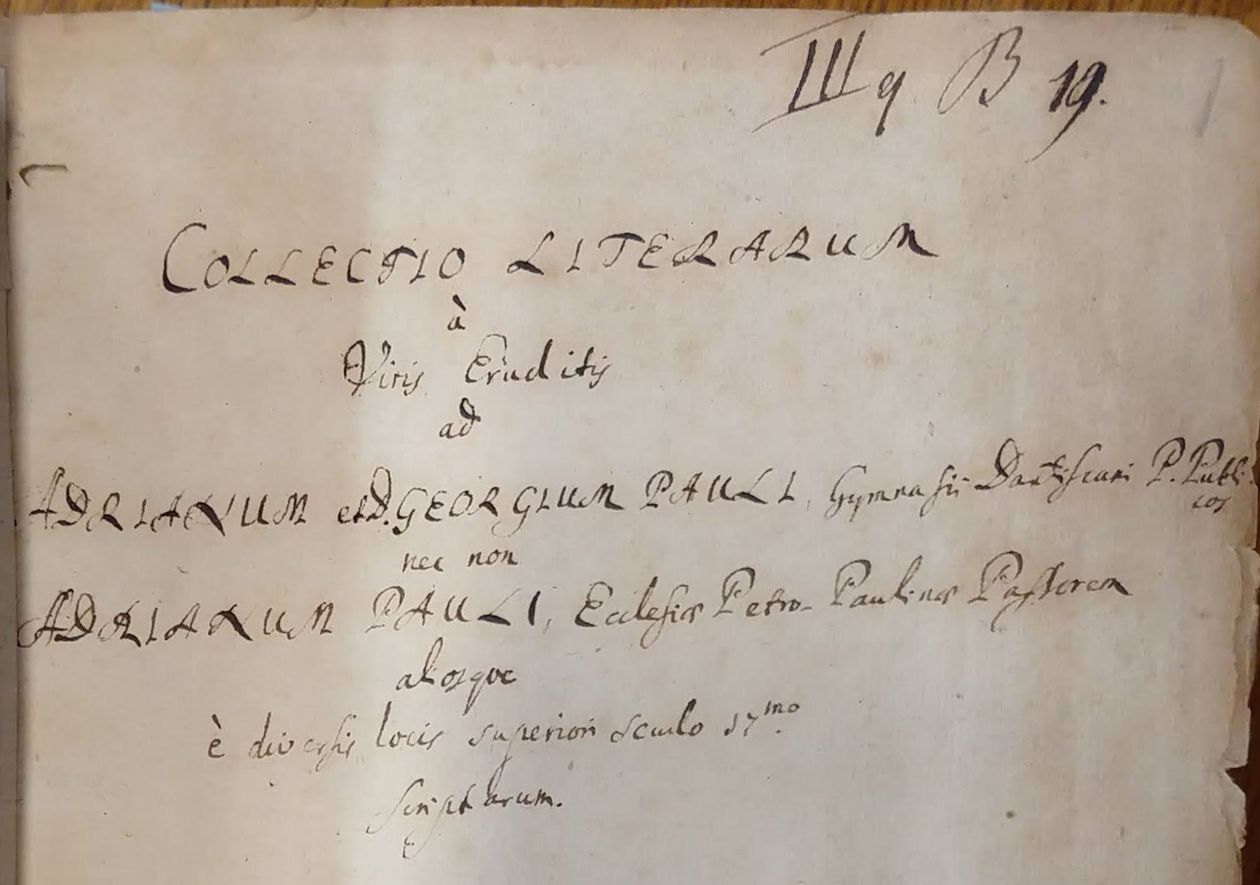 III q B 19.
1
COLLECTIO LITERARUM
à
Viris Eruditis
ad
ADRIANUM et D. GEORGIUM PAULI, Gymnasii Dantiscani P. Publi-
cos
nec non
ADRIANUM PAULI, Ecclesiæ Petro-Paulinæ Pastorem
aliosque
è diversis locis superiori seculo 17mo
scriptarum.